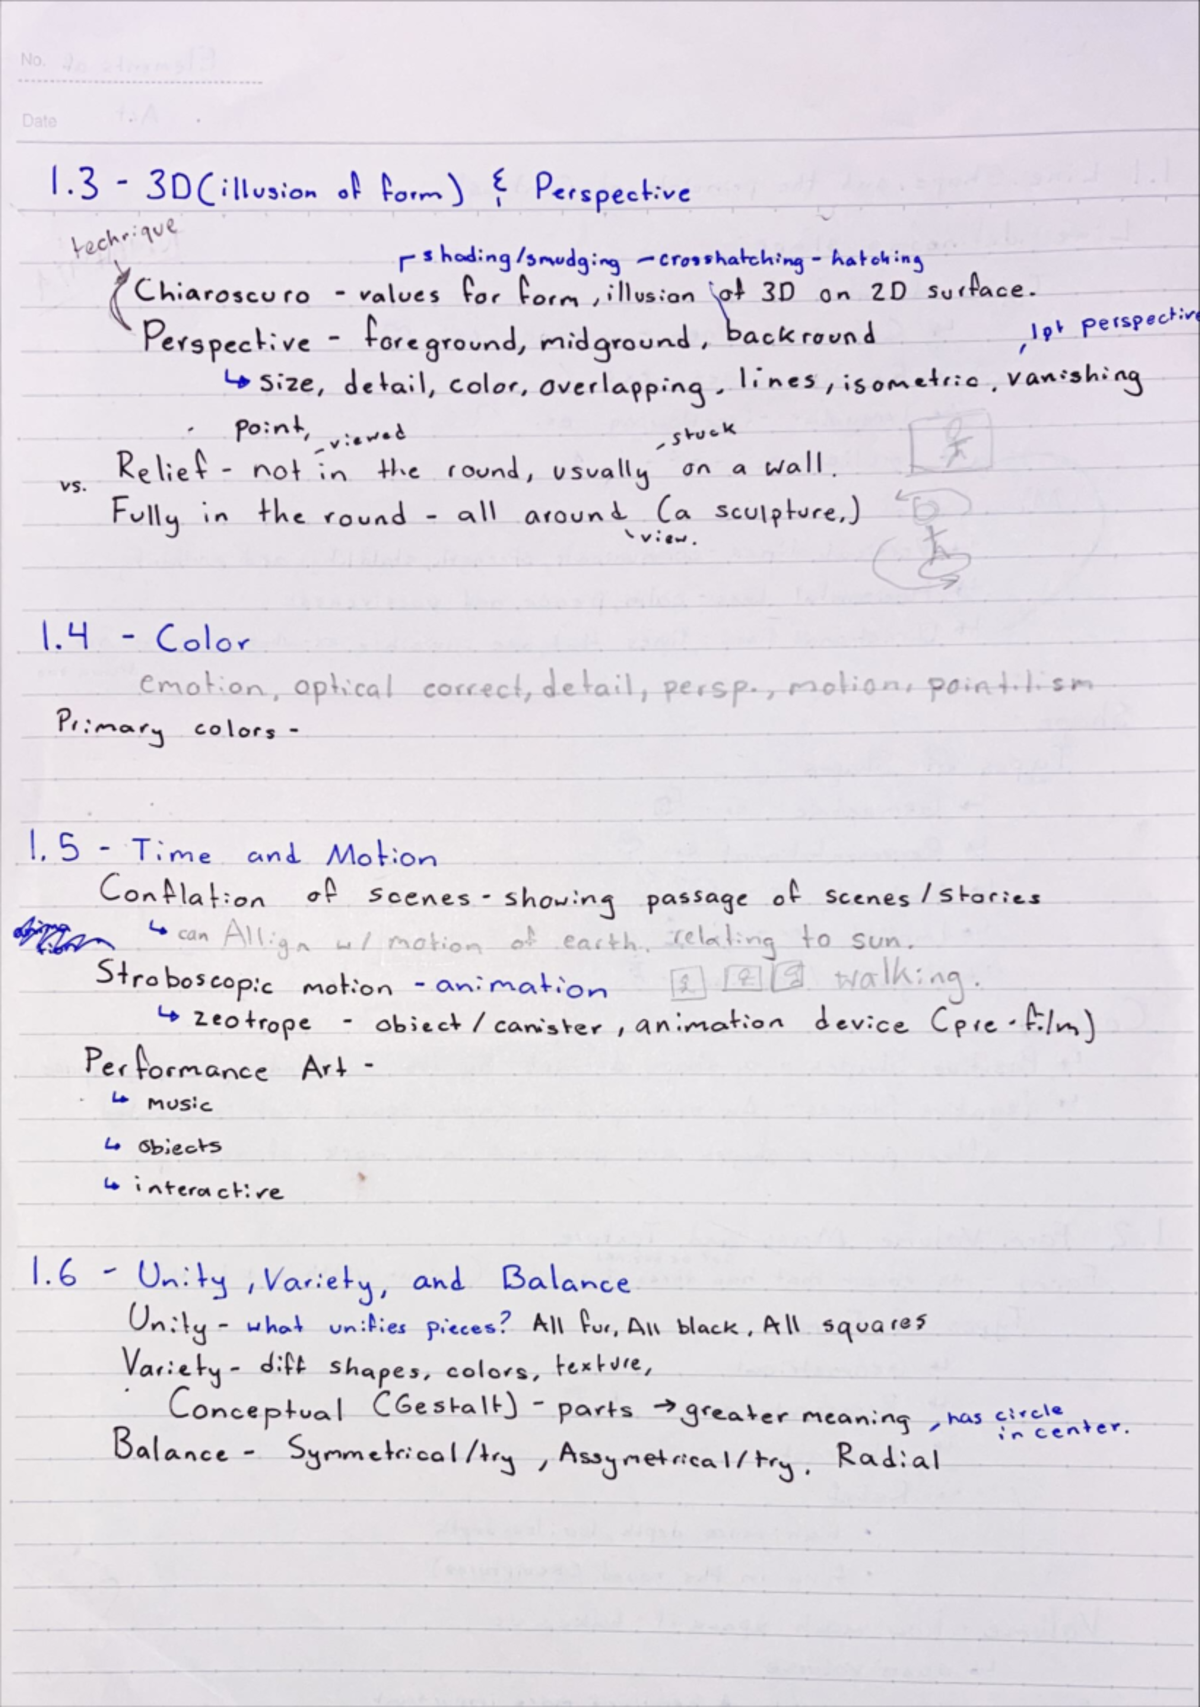 No.
Date
1.3 - 3D (illusion of form) & Perspective
technique
shading/smudging - crosshatching - hatching
Chiaroscuro - values for form, illusion of 3D on 2D surface.
Perspective - foreground, midground, backround
1pt perspective
↳ size, detail, color, overlapping, lines, isometric, vanishing
point,
viewed
stuck
Relief - not in the round, usually on a wall.
vs.
Fully in the round - all around (a sculpture,)
view.
1.4 - Color
emotion, optical correct, detail, persp., motion, pointilism
Primary colors -
1.5 - Time and Motion
Conflation of scenes - showing passage of scenes/stories
↳ can Allign w/ motion of earth. relating to sun.
Stroboscopic motion - animation walking.
↳ zeotrope - object/canister, animation device (pre-film)
Performance Art -
↳ music
↳ objects
↳ interactive
1.6 - Unity, Variety, and Balance
Unity - what unifies pieces? All fur, All black, All squares
Variety - diff shapes, colors, texture,
Conceptual (Gestalt) - parts → greater meaning
, has circle
in center.
Balance - Symmetrical/try, Assymetrical/try. Radial